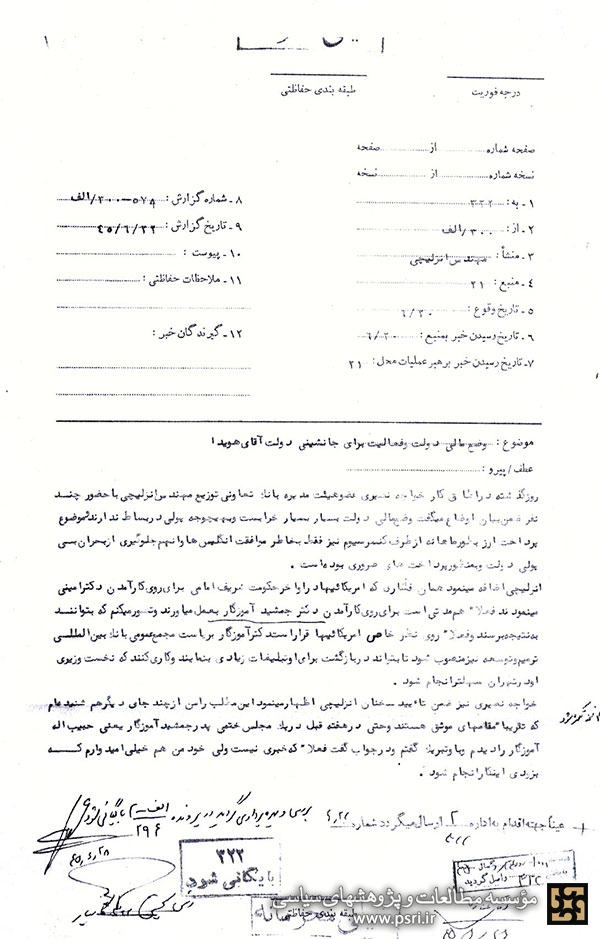 درجه فوریت
طبقه بندی حفاظتی
صفحه شماره از صفحه
نسخه شماره از نسخه
۱ـ به: ۳۲۲
۲ـ از: ۳۰۰/الف
۳ـ منشأ: مهندس انزلیچی
۴ـ منبع: ۲۱
۵ـ تاریخ وقوع: ۶/۲۰
۶ـ تاریخ رسیدن خبر بمنبع: ۶/۲۰
۷ـ تاریخ رسیدن خبر برهبر عملیات محل: ۲۱
۸ـ شماره گزارش:
۹ـ تاریخ گزارش: ۴۵/۶/۲۲
۱۰ـ پیوست:
۱۱ـ ملاحظات حفاظتی:
۱۲ـ گیرندگان خبر:
موضوع: وضع مالی دولت و فعالیت برای جانشینی دولت آقای هویدا
عطف/پیرو:
روز گذشته در اطاق کار خواجه نصیری عضو هیئت مدیره بانک تعاونی توزیع مهندس انزلیچی با حضور چند
نفر ضمن بیان اوضاع میگفت وضع مالی دولت بسیار بسیار خراب است و بهیچوجه پولی در بساط ندارند و موضوع
پرداخت ارز بطور ماهانه از طرف کنسرسیوم نیز فقط بخاطر موافقت انگلیس ها و آنهم جلوگیری از بحران بی
پولی دولت و بمنظور پرداخت های ضروری بوده است.
انزلیچی اضافه مینمود همان فشاری که امریکائیها در اواخر حکومت شریف امامی برای روی کار آمدن دکتر امینی
مینمودند فعلاً هم مدتی است برای روی کار آمدن دکتر جمشید آموزگار بعمل میاورند و تصور میکنم که بتوانند
به نتیجه برسند و فعلاً روی نظر خاص امریکائیها قرار است دکتر آموزگار بریاست مجمع عمومی بانک بین المللی
ترمیم و توسعه نیز منصوب شود تا بتواند در بازگشت برای او تبلیغات زیادی بنمایند و کاری کنند که نخست وزیری
او در تهران سهلتر انجام شود.
خواجه نصیری نیز ضمن تائید سخنان انزلیچی اظهار مینمود این مطلب را من از چند جای دیگر هم شنیده ام
که تقریباً مقامهای موثق هستند و حتی در هفته قبل در یک مجلس ختمی پدر جمشید آموزگار یعنی حبیب اله
آموزگار را دیدم و باو تبریک گفتم و در جواب گفت فعلاً که خبری نیست ولی خود من هم خیلی امیدوارم که
بزودی اینکار انجام شود.
عیناً جهت اقدام به اداره ۲ ارسال میگردد شماره
۳۲۲
بایگانی شود
طبقه بندی حفاظتی
مؤسسه مطالعات و پژوهشهای سیاسی
www.psri.ir